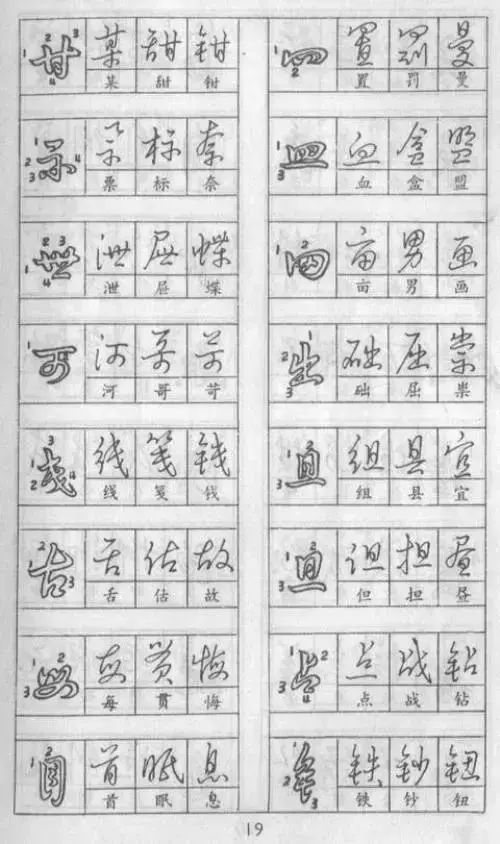 甘 某 甜 钳
某 甜 钳
示 票 标 奈
票 标 奈
世 泄 屉 蝶
泄 屉 蝶
可 河 哥 苛
河 哥 苛
戋 线 笺 钱
线 笺 钱
古 舌 估 故
舌 估 故
母 每 贯 悔
每 贯 悔
目 首 眠 息
首 眠 息
四 置 罚 曼
置 罚 曼
皿 血 盒 盟
血 盒 盟
田 亩 男 画
亩 男 画
出 础 屈 祟
础 屈 祟
且 组 县 宜
组 县 宜
旦 但 担 昼
但 担 昼
占 点 战 钻
点 战 钻
钅 铁 钞 钮
铁 钞 钮
19